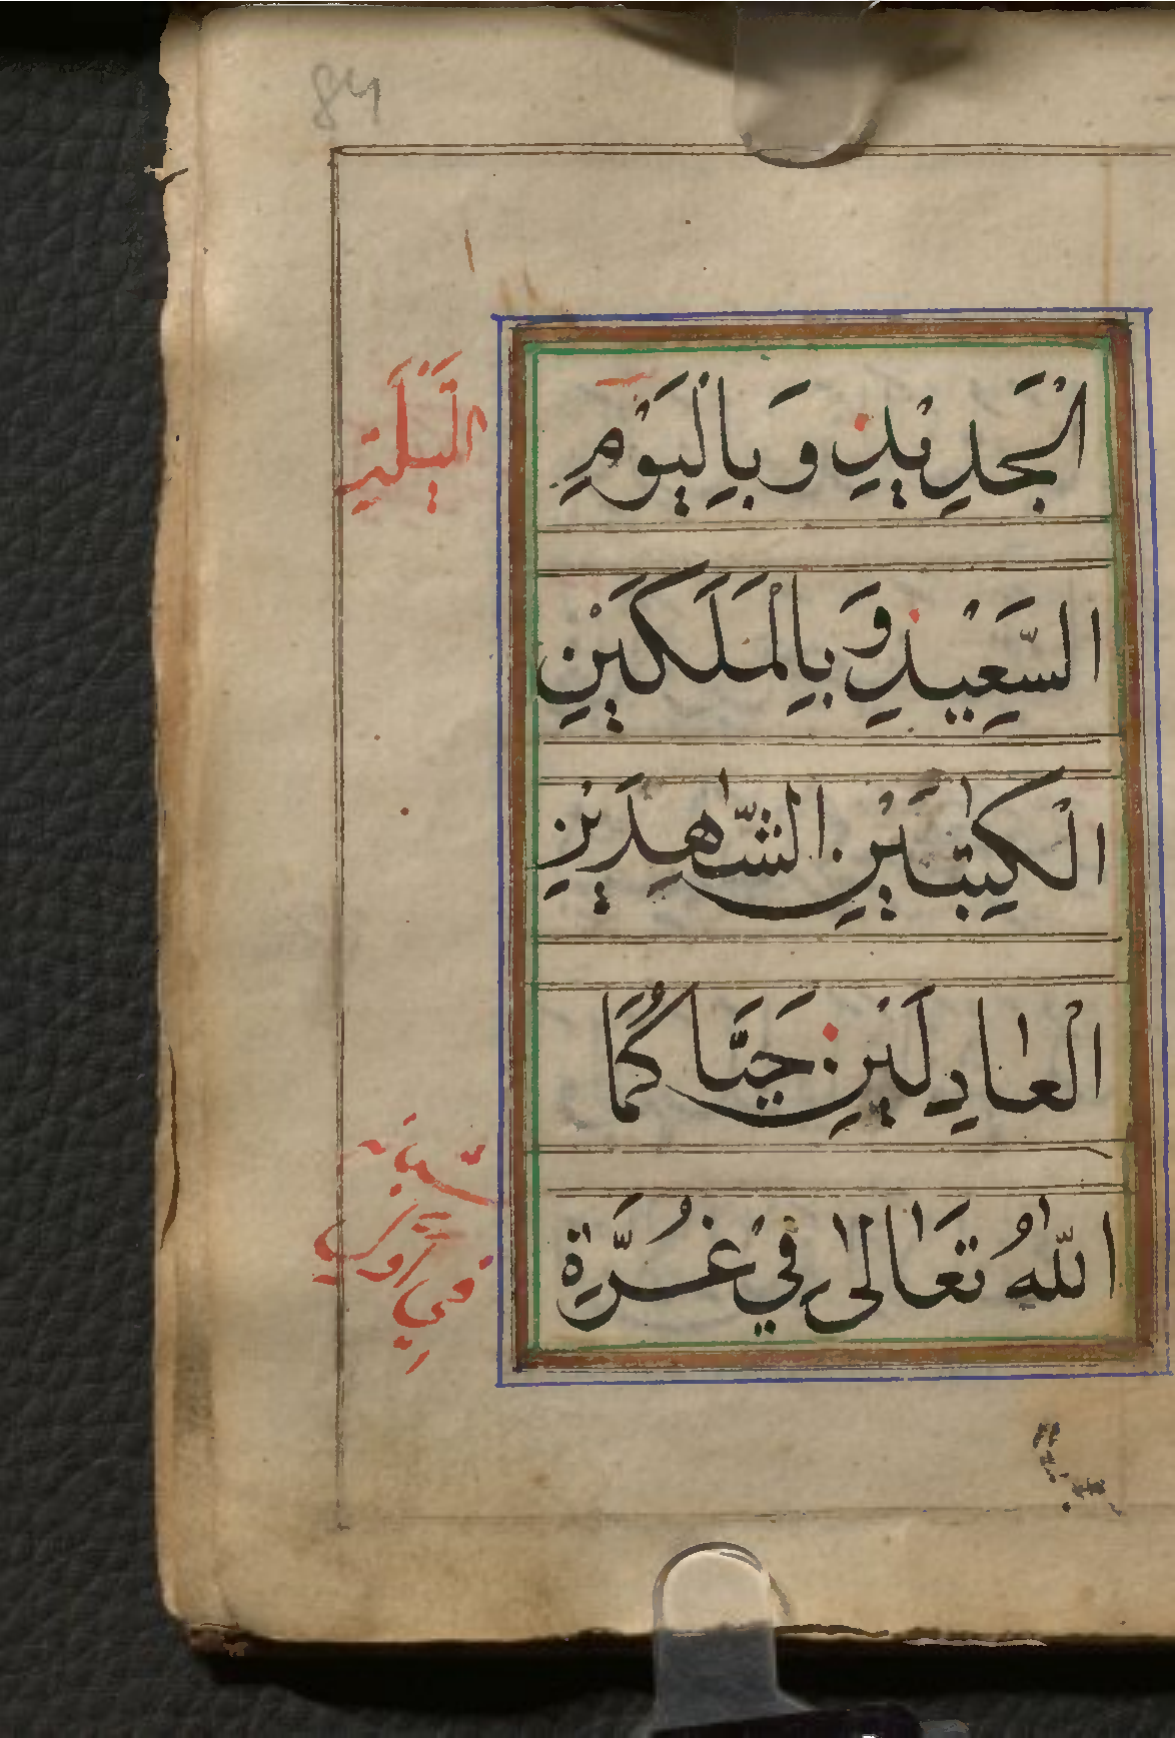 84
الْجَدِيْدِ وَبِالْيَوْمِ
اللَّيْلَةِ
السَّعِيْدِ وَبِالْمَلَكَيْنِ
الْكٰتِبَيْنِ الشَّاهِدَيْنِ
الْعَادِلَيْنِ حَيَّاكُمَا
اللّٰهُ تَعَالٰى فِيْ غُرَّةِ
فِي